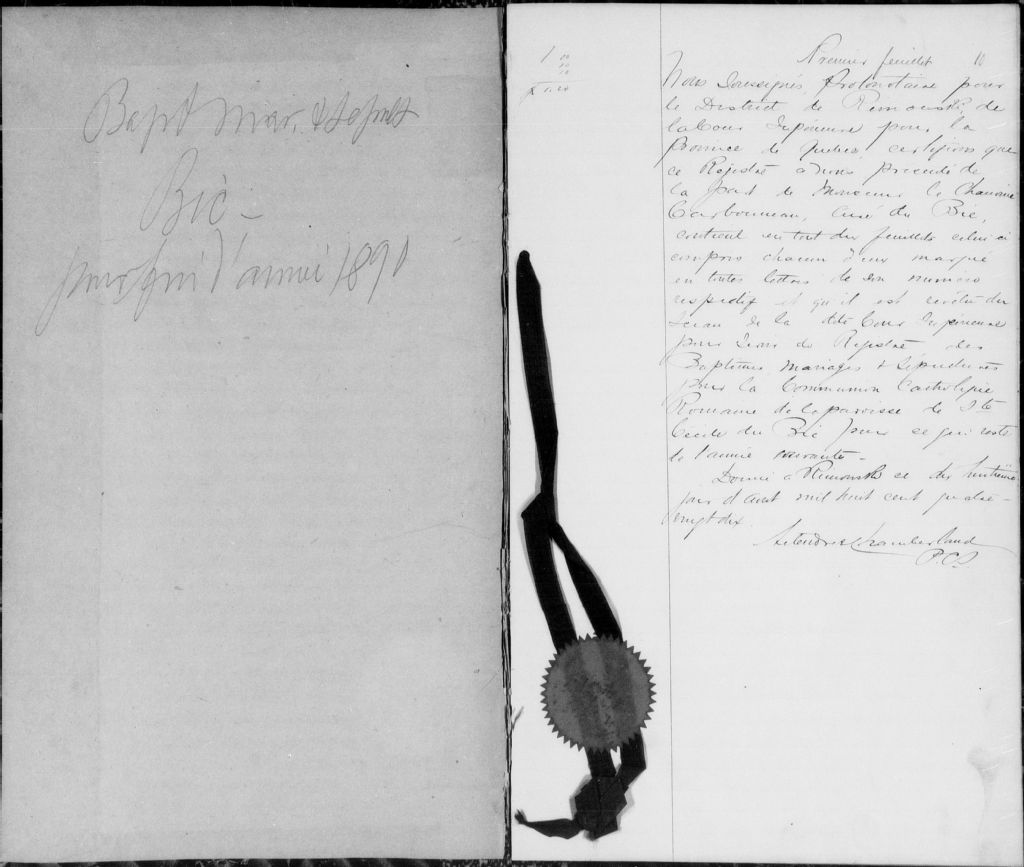 Bapt Mar. & Sepult
Bic -
pour fin d'année 1890
1 00
10
10
$1.20
Premier feuillet 10
Nous soussigné, Protonotaire pour
le District de Rimouski, de
la Cour Supérieure pour la
Province de Québec, certifions que
ce Régistre à nous présenté de
la part de Monsieur le Chanoine
Carbonneau, Curé du Bic,
contient en tout dix feuillets celui ci
compris chacun d'eux marqué
en toutes lettres de son numéro
respectif et qu'il est revêtu du
Sceau de la dite Cour Supérieure
pour servir de Régistre des
Baptêmes, Mariages & Sépultures
pour la Communion Catholique
Romaine de la paroisse de Ste
Cécile du Bic pour ce qui reste
de l'année courante -
Donné à Rimouski ce dix huitième
jour d'août mil huit cent quatre-
vingt dix.
Chamberland
P.C.S.